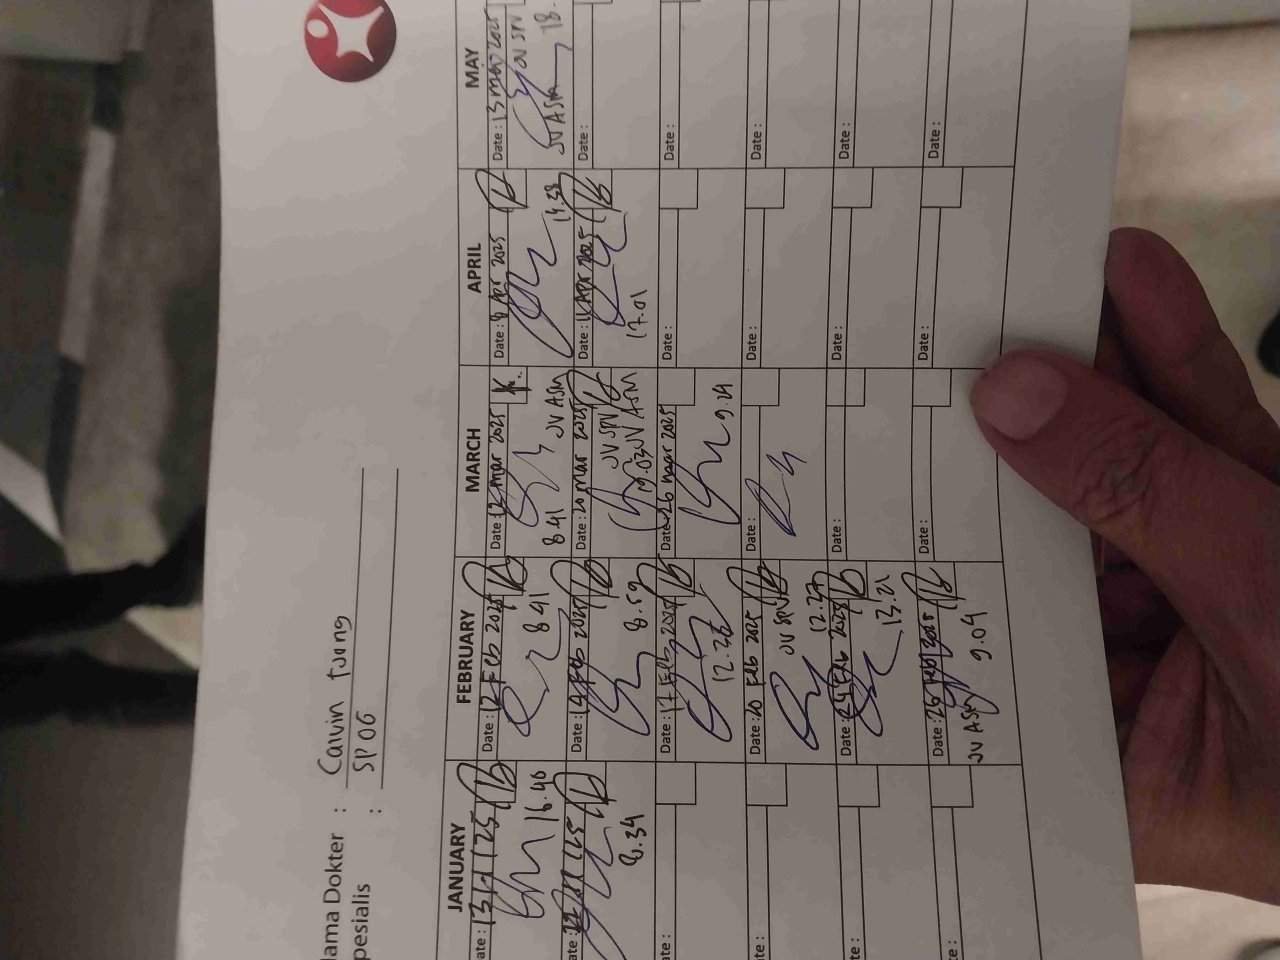 Nama Dokter : Calvin tjong
Spesialis : SP OG
JANUARY
FEBRUARY
MARCH
APRIL
MAY
Date : 13/1/25
16.40
Date : 12 Feb 2025
8.41
Date : 12 mar 2025
8.41 JV ASM
Date : 8 Apr 2025
14.58
Date : 13 may 2025
JV SPV
JV ASM 18.
Date :
8.34
Date : 14 Feb 2025
8.59
Date : 20 mar 2025
JV SPV
19.03 JV ASM
Date : 11 Apr 2025
17.01
Date :
Date :
Date : 17 Feb 2025
12.36
Date : 26 mar 2025
9.29
Date :
Date :
Date :
Date : 20 Feb 2025
JV SPV
12.27
Date :
Date :
Date :
Date :
Date : 24 Feb 2025
13.21
Date :
Date :
Date :
Date :
Date : 26 Feb 2025
JV ASM 9.04
Date :
Date :
Date :